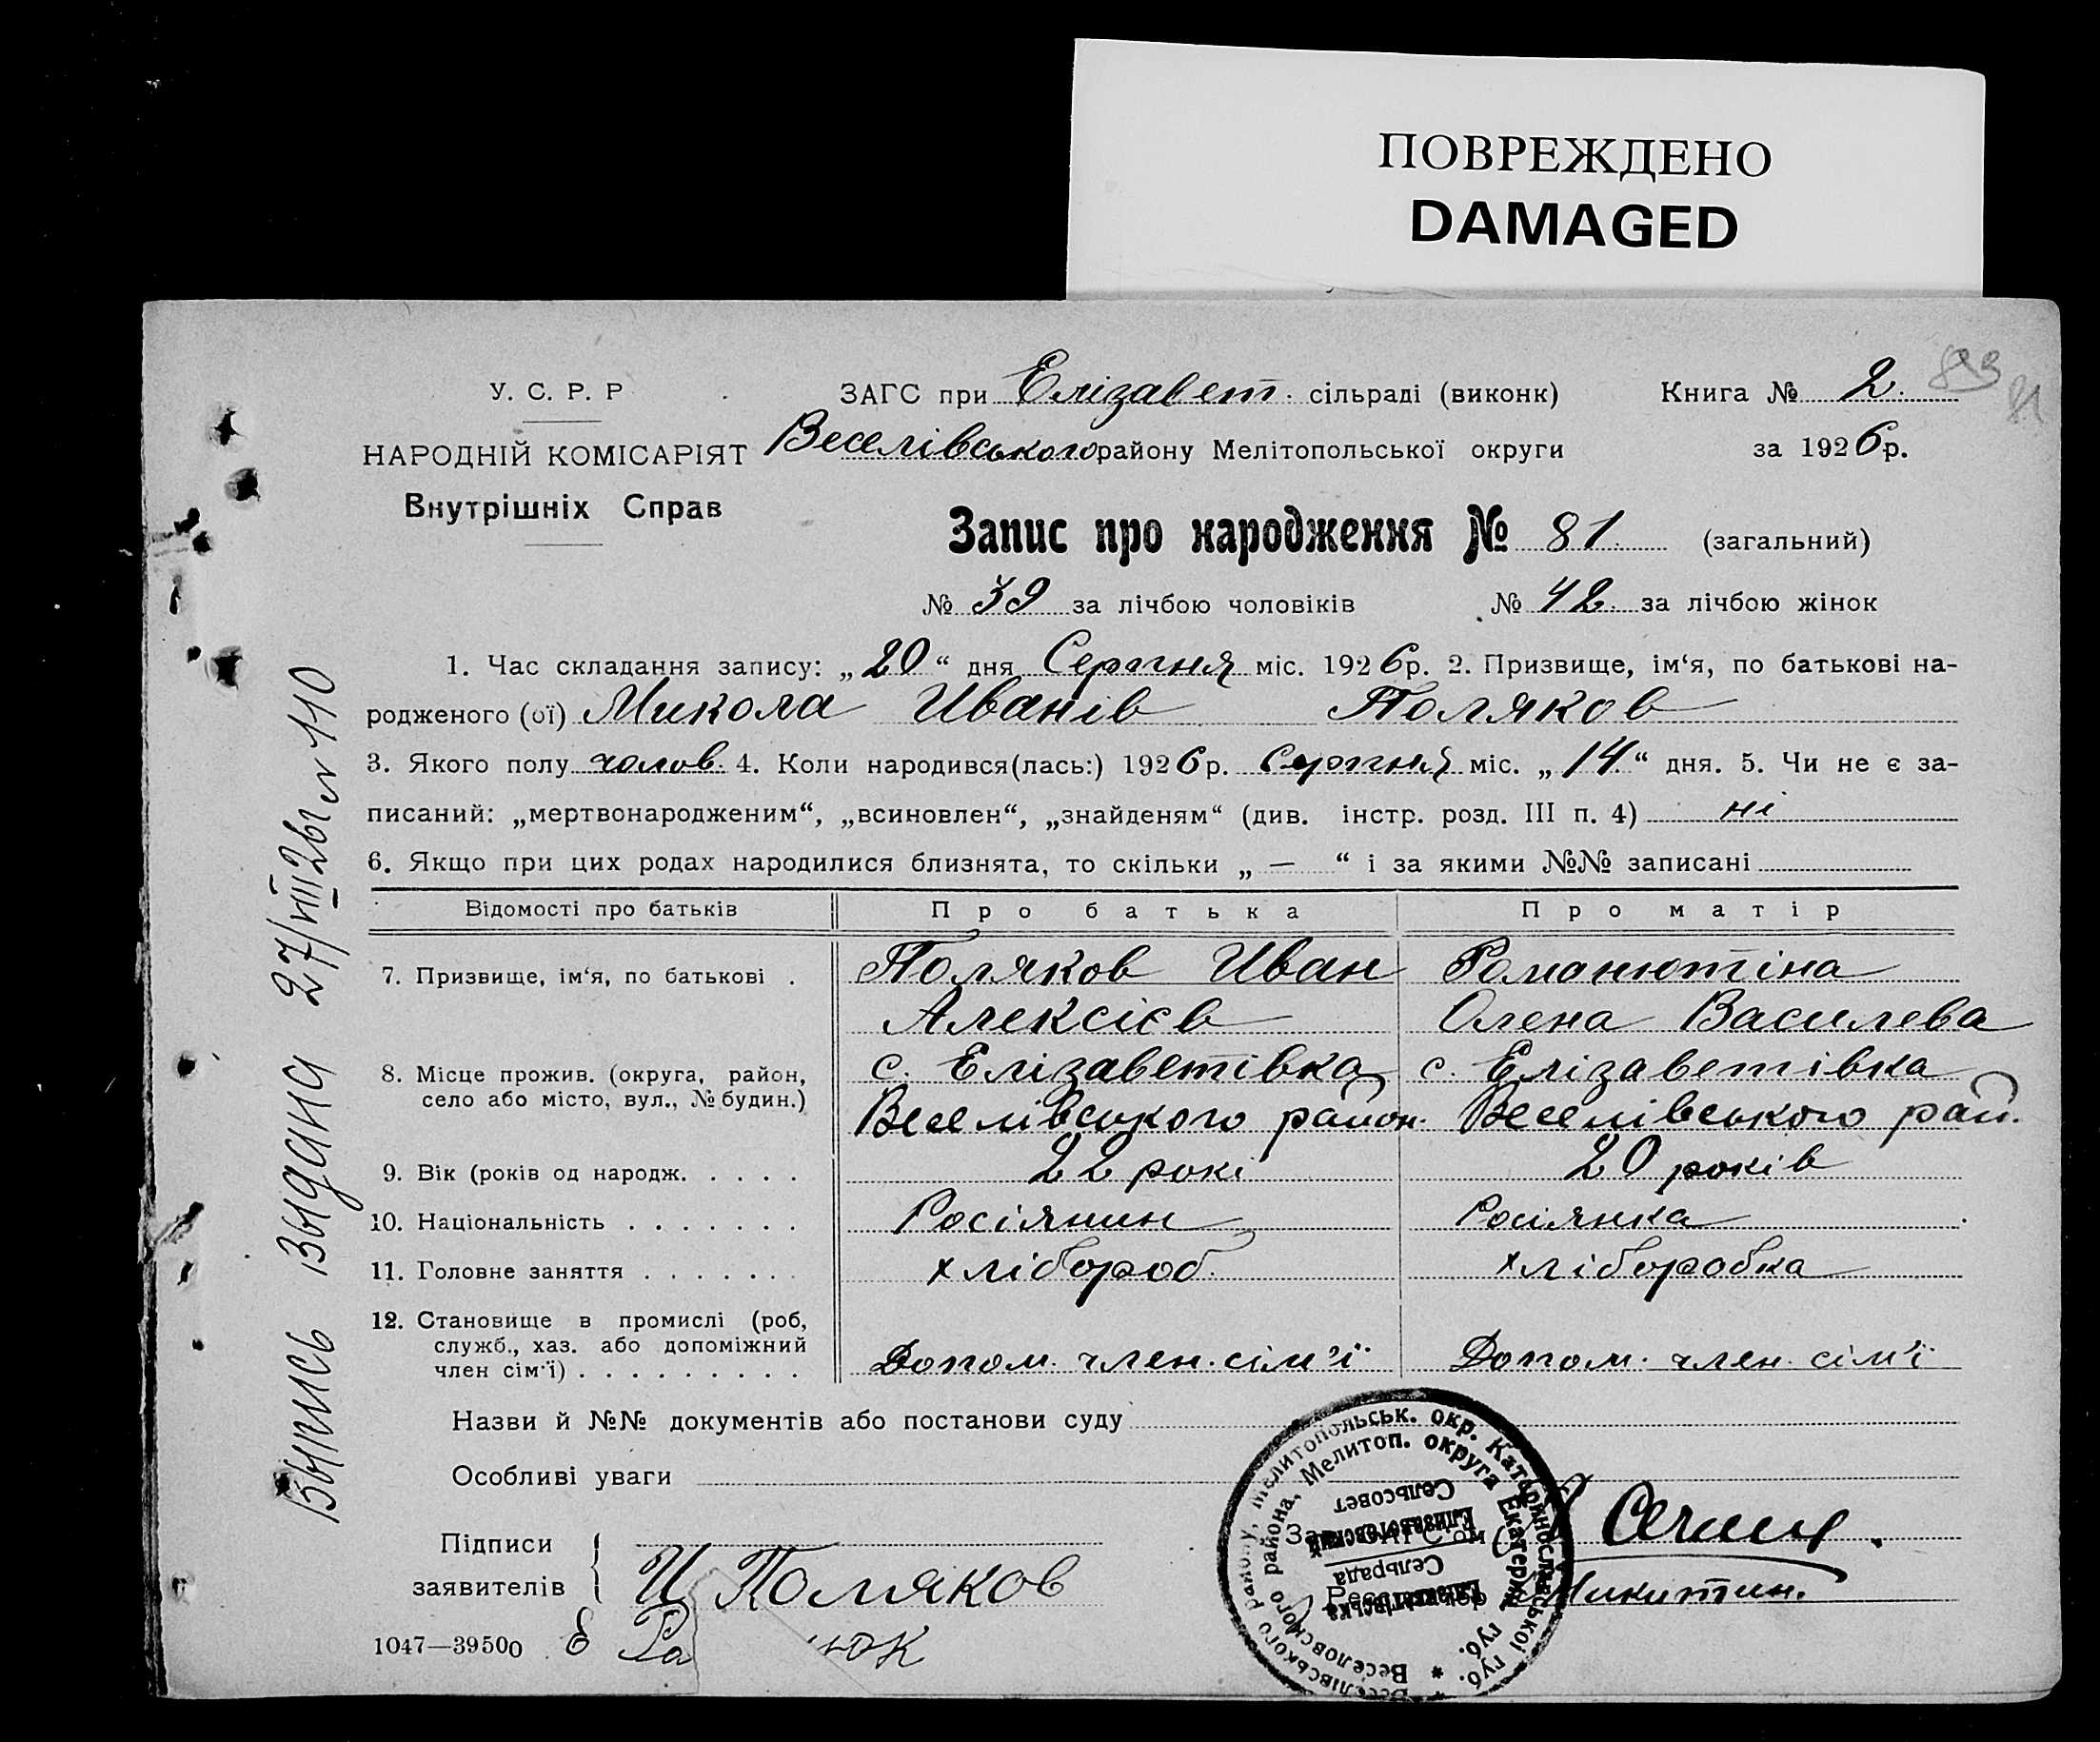 ПОВРЕЖДЕНО
DAMAGED
У. С. Р. Р
НАРОДНІЙ КОМІСАРІЯТ
Внутрішніх Справ
ЗАГС при Елізавет. сільраді (виконк)
Веселівського району Мелітопольської округи
Книга № 2.
за 1926 р.
Запис про народження № 81. (загальний)
№ 39 за лічбою чоловіків № 42 за лічбою жінок
1. Час складання запису: „20“ дня Серпня міс. 1926 р. 2. Призвище, ім‘я, по батькові на-
родженого (ої) Микола Иванів Поляков
3. Якого полу чолов. 4. Коли народився(лась:) 1926 р. Серпня міс. „14.“ дня. 5. Чи не є за-
писаний: „мертвонародженим“, „всиновлен“, „знайденям“ (див. інстр. розд. III п. 4) ні
6. Якщо при цих родах народилися близнята, то скільки „ — “ і за якими №№ записані
Відомості про батьків Про батька Про матір
7. Призвище, ім‘я, по батькові . Поляков Иван Романютіна
Алексієв Олена Василева
8. Місце прожив. (округа, район, с. Елізаветівка с. Елізаветівка
село або місто, вул., № будин.) Веселівського район. Веселівського рай.
9. Вік (років од народж. . . . . 22 рокі 20 років
10. Національність . . . . . . . Росіянин Росіянка
11. Головне заняття . . . . . . . хлібороб. хлiборобка
12. Становище в промислі (роб,
служб., хаз. або допоміжний
член сім‘ї) . . . . . . . . . Допом. член. сім’ї Допом. член сім’ї
Назви й №№ документів або постанови суду
Особливі уваги
Підписи
заявителів
И Поляков
Е Ра нюк
Никитин.
1047—39500
Выпись выдана 27/VIII 26 г № 110
Веселівського району, Мелитопольськ. окр. Катеринославської губ.
Веселовского района, Мелитоп. округа Екатерин. губ.
Сельсовет
Сельрада